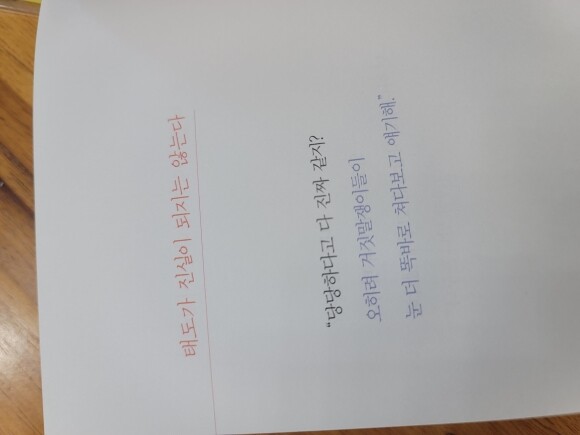 태도가 진실이 되지는 않는다
“당당하다고 다 진짜 같지?
오히려 거짓말쟁이들이
눈 더 똑바로 쳐다보고 얘기해.”